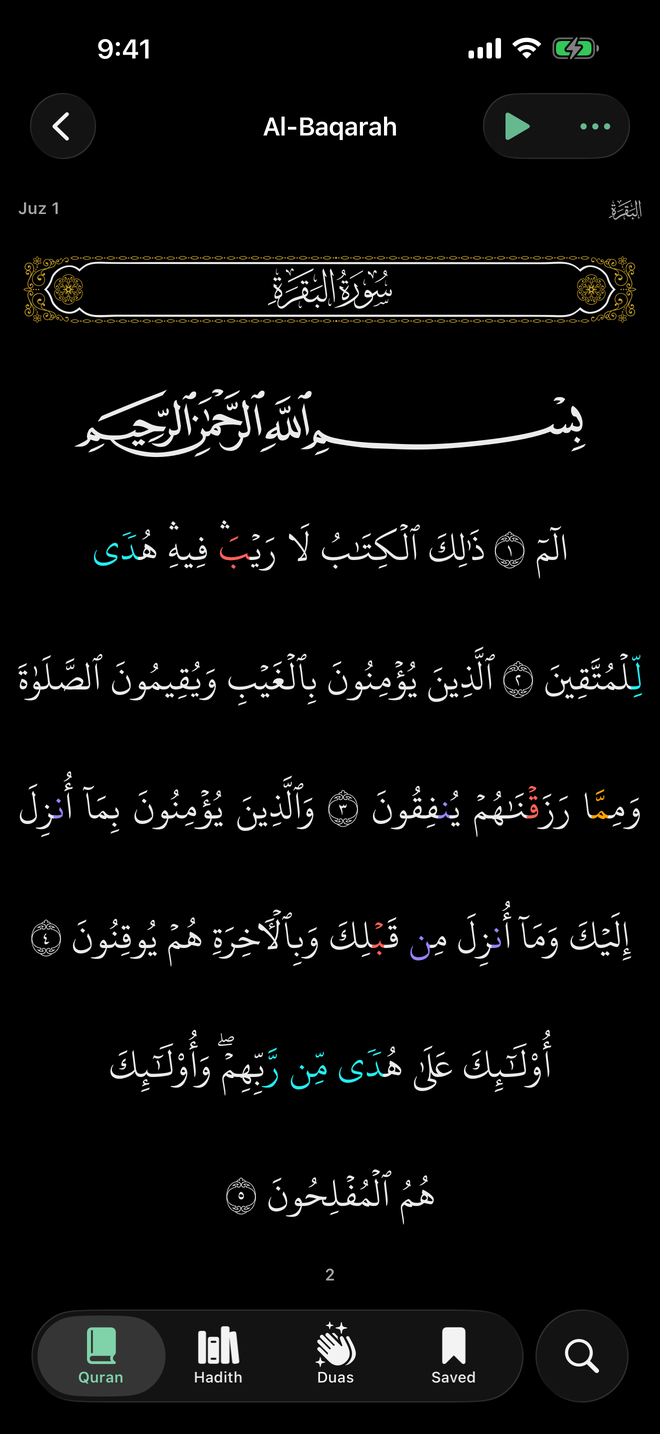 9:41
Al-Baqarah
Juz 1
البقرة
سُورَةُ البَقَرَةِ
بِسْمِ ٱللَّهِ ٱلرَّحْمَٰنِ ٱلرَّحِيمِ
الٓمٓ ١ ذَٰلِكَ ٱلْكِتَٰبُ لَا رَيْبَ ۛ فِيهِ ۛ هُدًى
لِّلْمُتَّقِينَ ٢ ٱلَّذِينَ يُؤْمِنُونَ بِٱلْغَيْبِ وَيُقِيمُونَ ٱلصَّلَوٰةَ
وَمِمَّا رَزَقْنَٰهُمْ يُنفِقُونَ ٣ وَٱلَّذِينَ يُؤْمِنُونَ بِمَآ أُنزِلَ
إِلَيْكَ وَمَآ أُنزِلَ مِن قَبْلِكَ وَبِٱلْـَٔاخِرَةِ هُمْ يُوقِنُونَ ٤
أُو۟لَٰٓئِكَ عَلَىٰ هُدًى مِّن رَّبِّهِمْ ۖ وَأُو۟لَٰٓئِكَ
هُمُ ٱلْمُفْلِحُونَ ٥
2
Quran Hadith Duas Saved